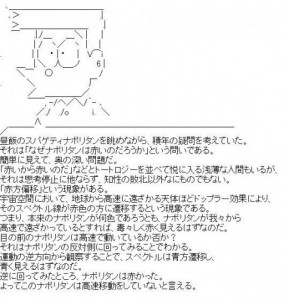 昼飯のスパゲティナポリタンを眺めながら、積年の疑問を考えていた。
それは「なぜナポリタンは赤いのだろうか」という問いである。
簡単に見えて、奥の深い問題だ。
「赤いから赤いのだ」などとトートロジーを並べて悦に入る浅薄な人間もいるが、
それは思考停止に他ならず、知性の敗北以外なにものでもない。
「赤方偏移」という現象がある。
宇宙空間において、地球から高速に遠ざかる天体ほどドップラー効果により、
そのスペクトル線が赤色の方に遷移するという現象である。
つまり、本来のナポリタンが何色であろうとも、ナポリタンが我々から
高速で遠ざかっているとすれば、毒々しく赤く見えるはずなのだ。
目の前のナポリタンは高速で動いているか否か?
それはナポリタンの反対側に回ってみることでわかる。
運動の逆方向から観察することで、スペクトルは青方遷移し、
青く見えるはずなのだ。
逆に回ってみたところ、ナポリタンは赤かった。
よってこのナポリタンは高速移動をしていないと言える。